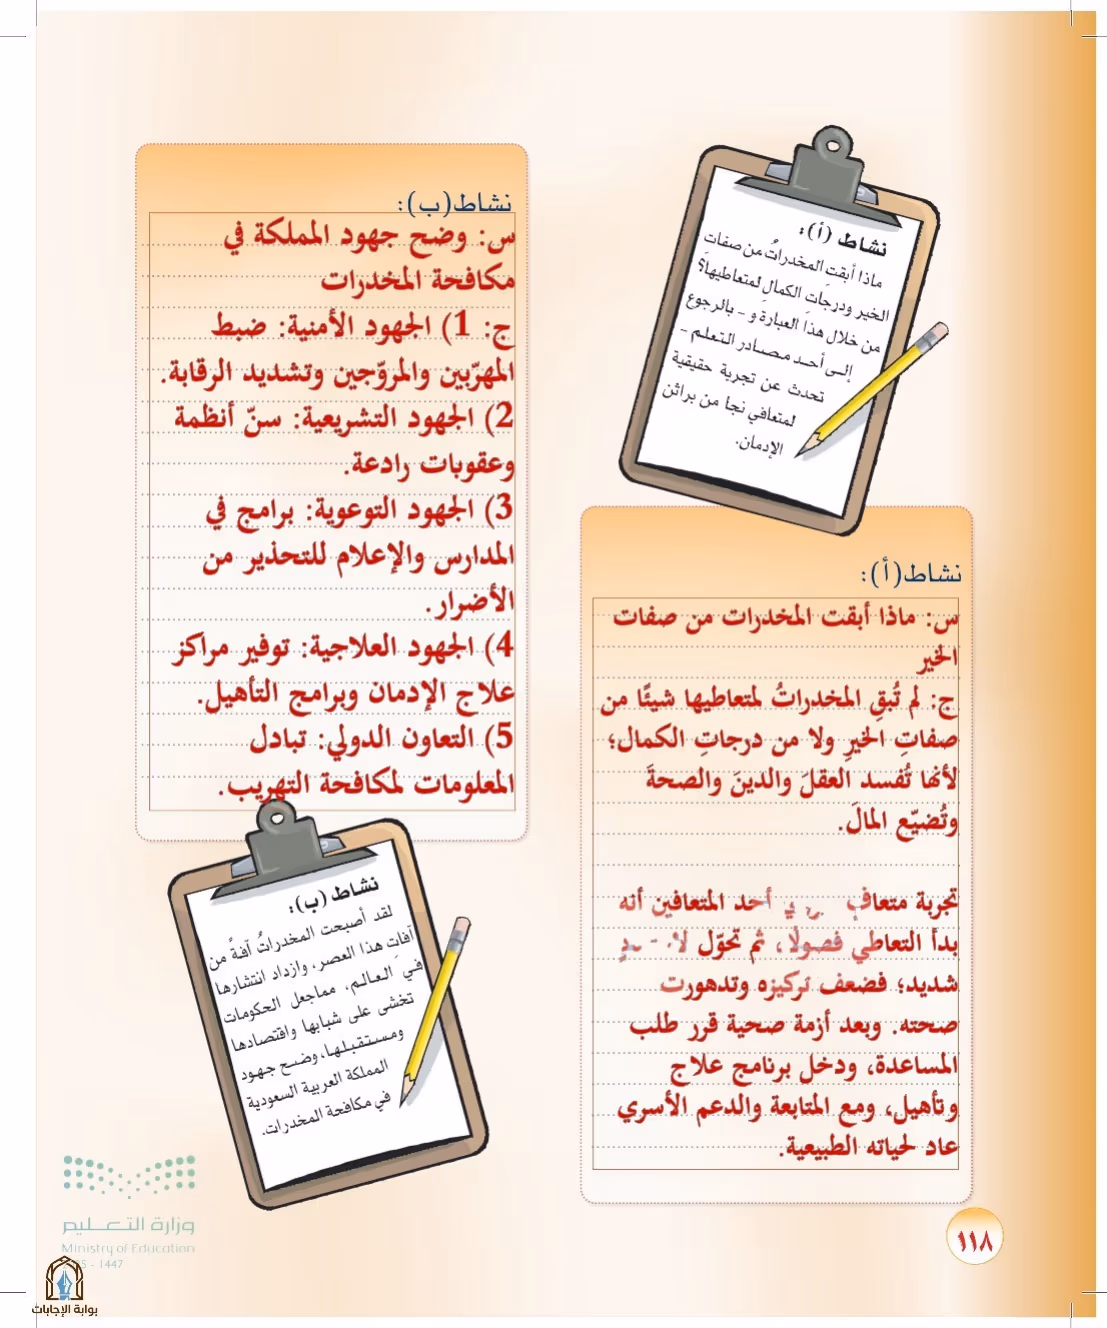 نشاط (أ):
ماذا أبقت المخدراتُ من صفات
الخير ودرجات الكمالِ لمتعاطيها؟
من خلال هذا العبارة و - بالرجوع
إلى أحد مصادر التعلم -
تحدث عن تجربة حقيقية
لمتعافي نجا من براثن
الإدمان.
نشاط(أ):
س: ماذا أبقت المخدرات من صفات
الخير
ج: لم تُبقِ المخدراتُ لمتعاطيها شيئًا من
صفاتِ الخيرِ ولا من درجاتِ الكمال؛
لأنها تُفسد العقلَ والدينَ والصحةَ
وتُضيّع المالَ.
تجربة متعافٍ أحد المتعافين أنه
بدأ التعاطي فضولًا، ثم تحوّل
شديد؛ فضعف تركيزه وتدهورت
صحته. وبعد أزمة صحية قرر طلب
المساعدة، ودخل برنامج علاج
وتأهيل، ومع المتابعة والدعم الأسري
عاد لحياته الطبيعية.
نشاط(ب):
س: وضح جهود المملكة في
مكافحة المخدرات
ج: 1) الجهود الأمنية: ضبط
المهرّبين والمروّجين وتشديد الرقابة.
2) الجهود التشريعية: سنّ أنظمة
وعقوبات رادعة.
3) الجهود التوعوية: برامج في
المدارس والإعلام للتحذير من
الأضرار.
4) الجهود العلاجية: توفير مراكز
علاج الإدمان وبرامج التأهيل.
5) التعاون الدولي: تبادل
المعلومات لمكافحة التهريب.
نشاط (ب):
لقد أصبحت المخدراتُ آفةً من
آفات هذا العصر، وازداد انتشارها
في العالم، مماجعل الحكومات
تخشى على شبابها واقتصادها
ومستقبلها، وضح جهود
المملكة العربية السعودية
في مكافحة المخدرات.
وزارة التعليم
Ministry of Education
- 1447
بوابة الإجابات
١١٨